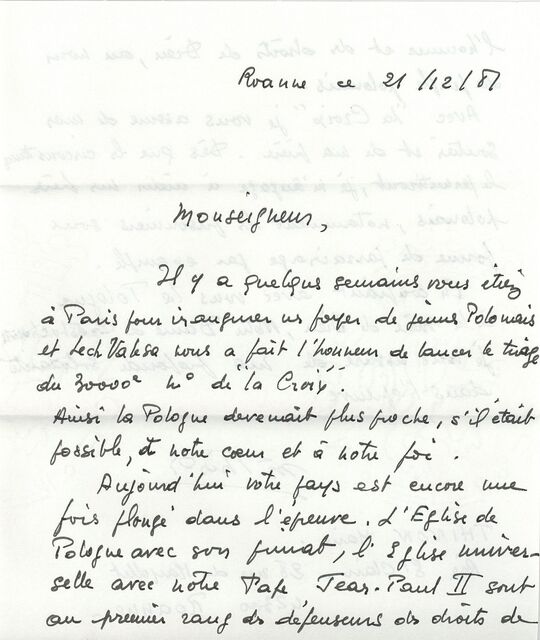 Roanne ce 21/12/81
Monseigneur,
Il y a quelques semaines vous étiez
à Paris pour inaugurer un foyer de jeunes Polonais
et Lech Valesa nous a fait l'honneur de lancer le tirage
du 30000e no de "la Croix".
Ainsi la Pologne devenait plus proche, s'il était
possible, à notre cœur et à notre foi.
Aujourd'hui votre pays est encore une
fois plongé dans l'épreuve. L'Eglise de
Pologne avec son primat, l'Eglise univer-
selle avec notre Pape Jean-Paul II sont
au premier rang des défenseurs des droits de